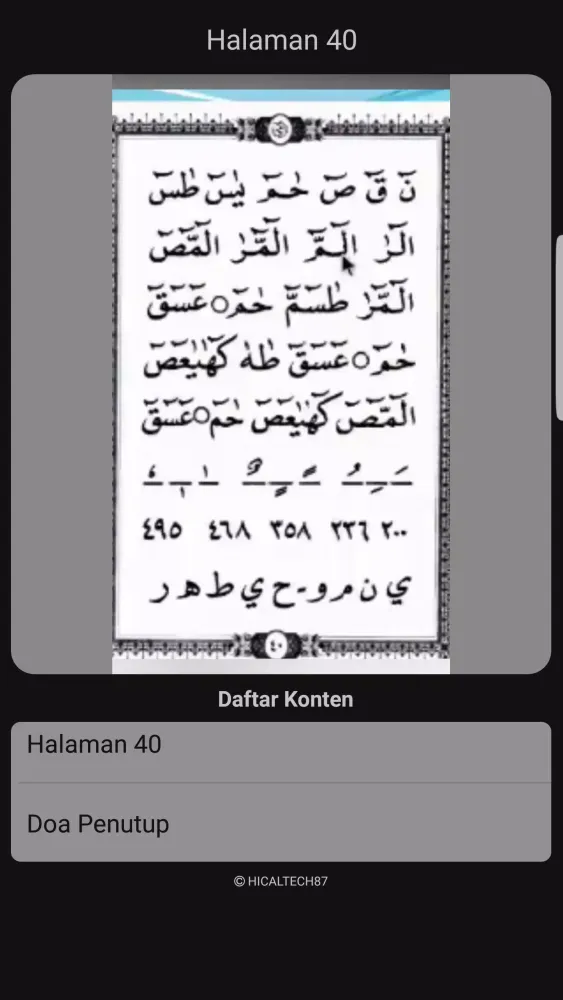 Halaman 40
نٓ قٓ صٓ حٰمٓ يٰسٓ طٰسٓ
الٓرٰ الٓمّٓ الٓمّٓرٰ الٓمّٓصٓ
الٓمّٓرٰ طٰسٓمّٓ حٰمٓ ○ عٓسٓقٓ
حٰمٓ ○ عٓسٓقٓ طٰهٰ كٓهٰيٰعٓصٓ
الٓمّٓصٓ كٓهٰيٰعٓصٓ حٰمٓ ○ عٓسٓقٓ
٢٠٠ ٢٣٦ ٣٥٨ ٤٦٨ ٤٩٥
ي ن م و - ح ي ط ه ر
٤٠
Daftar Konten
Halaman 40
Doa Penutup
© HICALTECH87